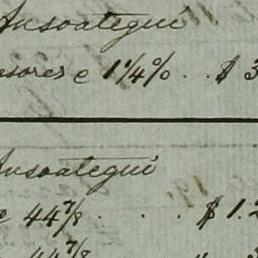 Ansoategui
sores e 1 1/4 % .. $ 3
Ansoategui
e 44 7/8 . . . $ 1.2
44 7/8